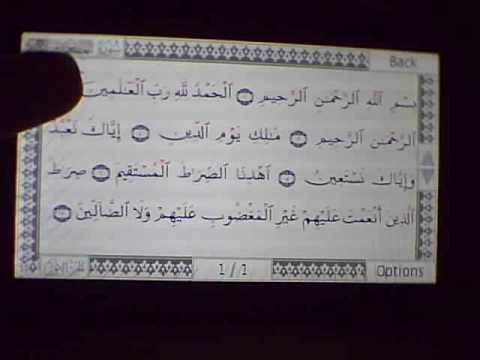 سورة
Back
بِسْمِ ٱللَّهِ ٱلرَّحْمَٰنِ ٱلرَّحِيمِ ۝ ٱلْحَمْدُ لِلَّهِ رَبِّ ٱلْعَٰلَمِينَ
ٱلرَّحْمَٰنِ ٱلرَّحِيمِ ۝ مَٰلِكِ يَوْمِ ٱلدِّينِ ۝ إِيَّاكَ نَعْبُدُ
وَإِيَّاكَ نَسْتَعِينُ ۝ ٱهْدِنَا ٱلصِّرَٰطَ ٱلْمُسْتَقِيمَ ۝ صِرَٰطَ
ٱلَّذِينَ أَنْعَمْتَ عَلَيْهِمْ غَيْرِ ٱلْمَغْضُوبِ عَلَيْهِمْ وَلَا ٱلضَّآلِّينَ ۝
1 / 1
Options